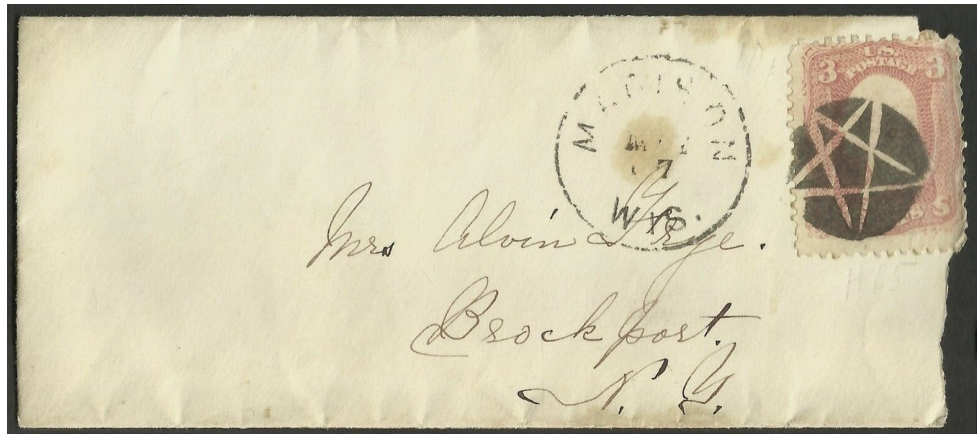 MADISON
17
WIS.
3 U.S. POSTAGE 3
Mrs Alvin Frye.
Brockport.
N. Y.